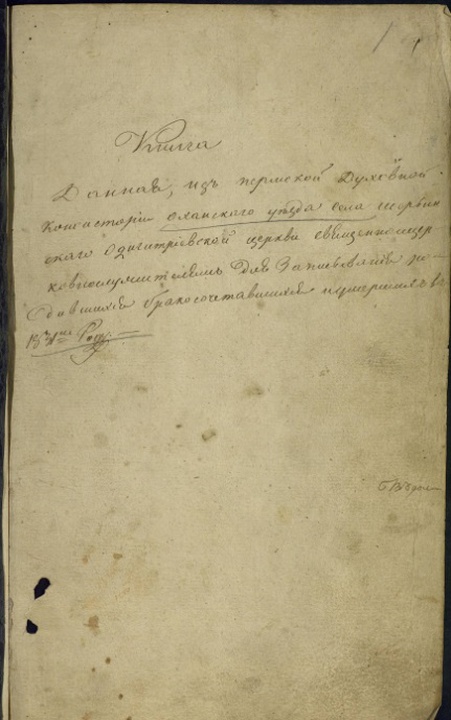 Книга
Данная, изъ пермской Духовной
Консисторіи Оханскаго уѣзда села
скаго Одигитріевской церкви священноцер
ковнослужителямъ для Записыванія ро-
дившихся бракосочетавшихся иумершихъ в
Году.